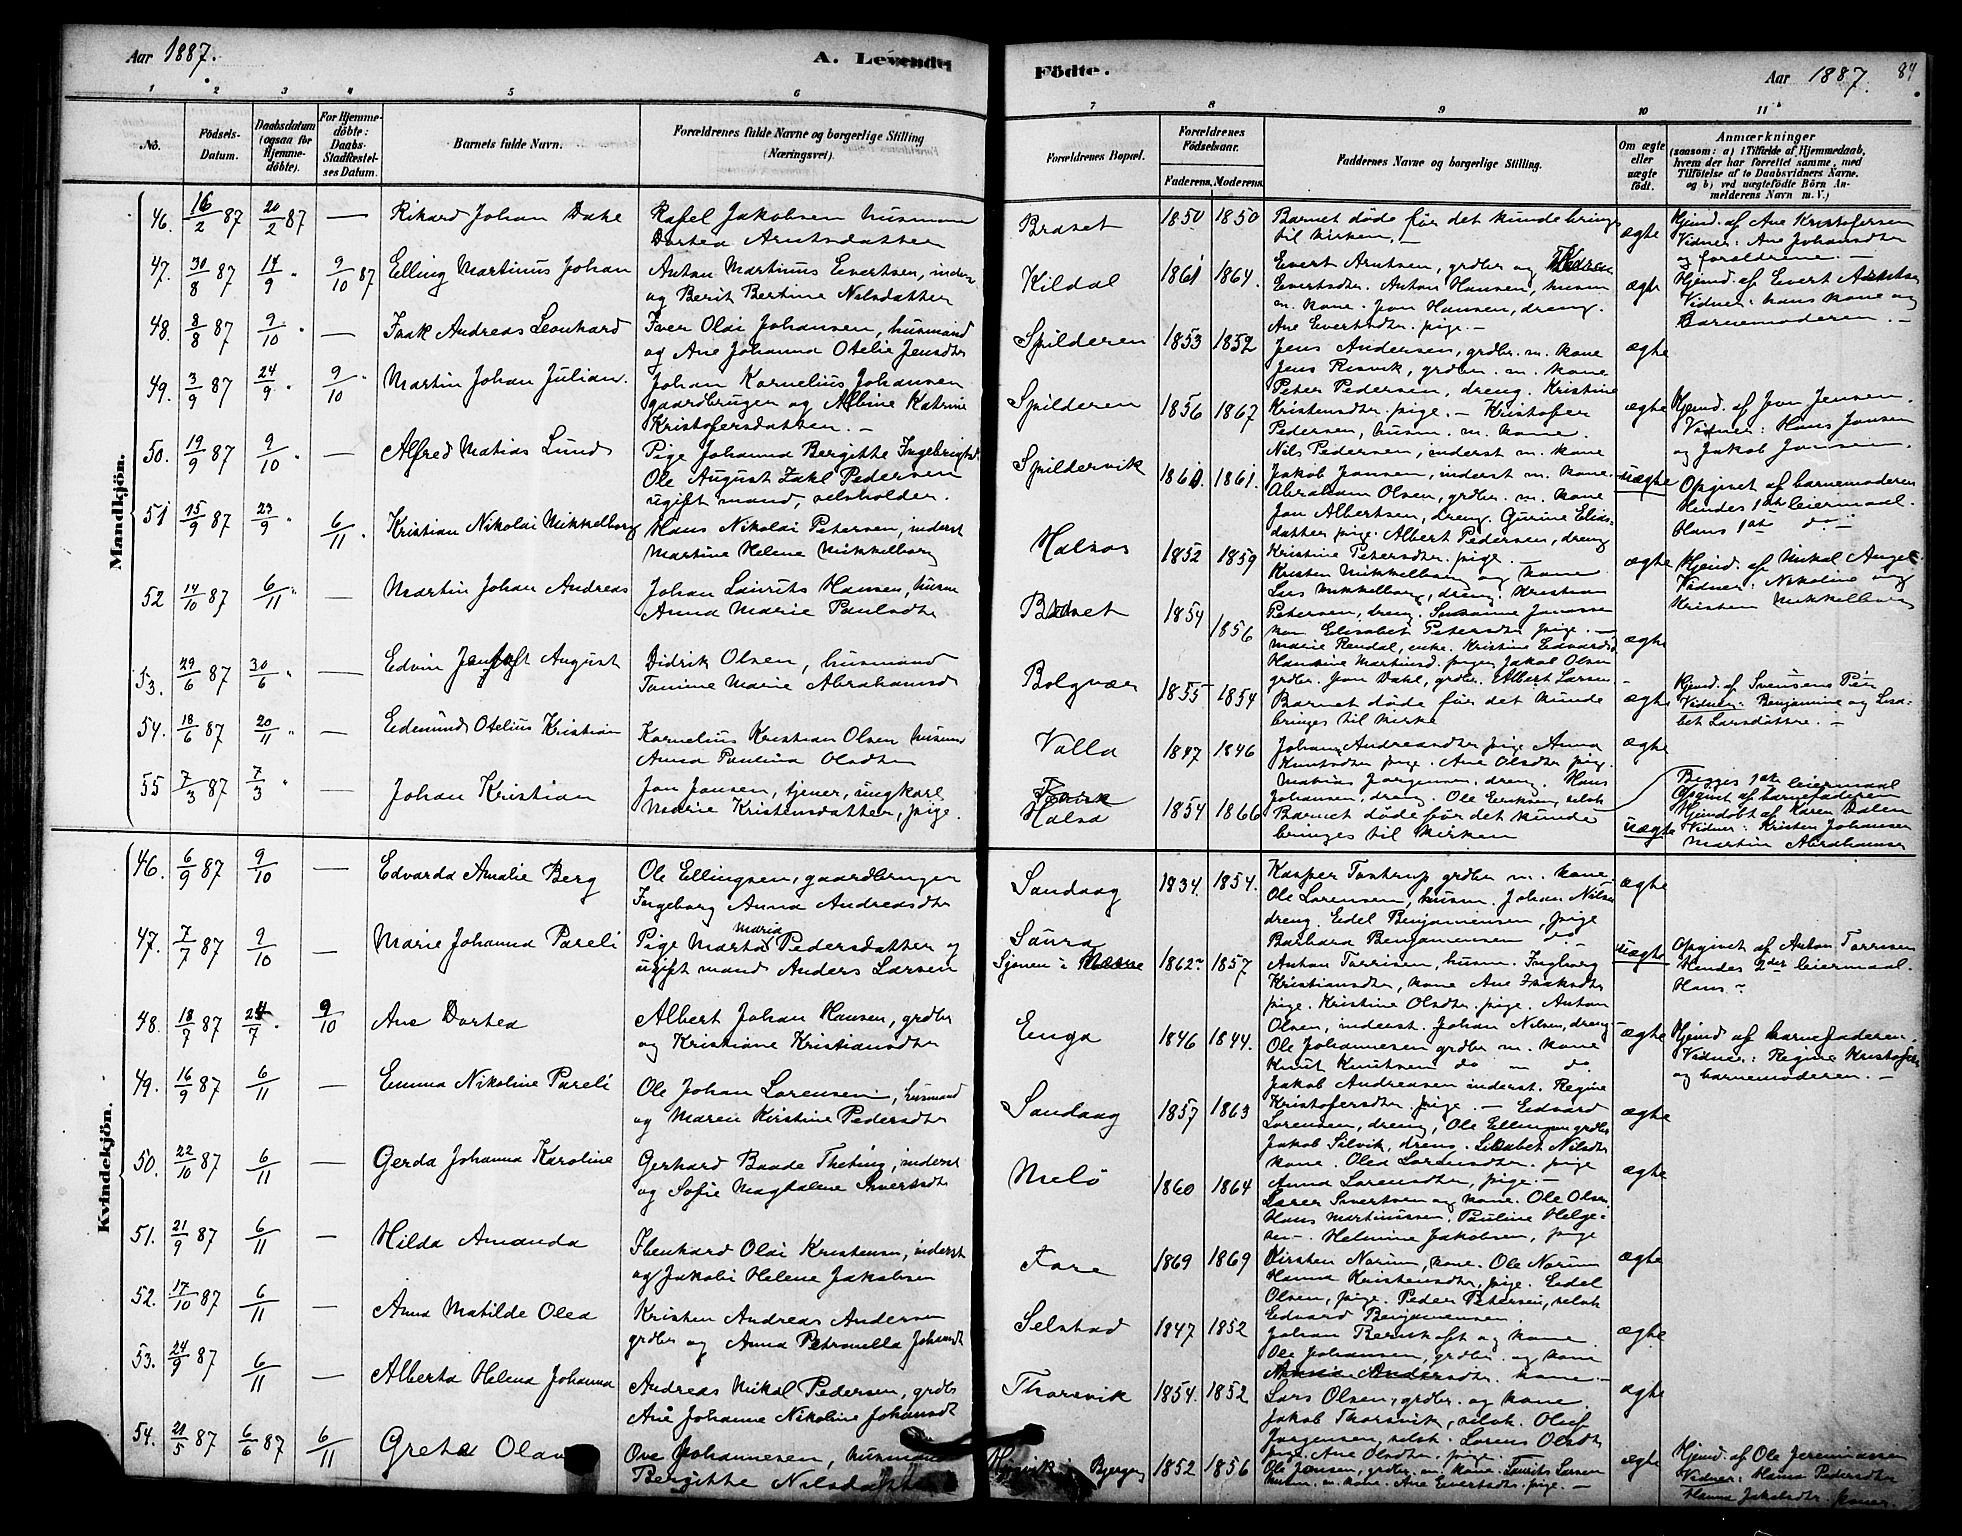 Aar 1887.
A. Levende
Födte.
Aar 1887.
84
1 2 3 4 5 6 7 8 9 10 11
No.
Födsels-Datum.
Daabsdatum (ogsaa for Hjemmedöbte).
For Hjemmedöbte: Daabs-Stadfæstelses Datum.
Barnets fulde Navn.
Forældrenes fulde Navne og borgerlige Stilling (Næringsvei).
Forældrenes Bopæl.
Forældrenes Födselsaar.
Faderens. Moderens.
Faddernes Navne og borgerlige Stilling.
Om ægte eller uægte födt.
Anmærkninger
(saasom: a) i Tilfælde af Hjemmedaab, hvem der har forrettet samme, med Tilföielse af to Daabsvidners Navne. og b) ved uægtefödte Börn Anmelderens Navn m. V.)
Mandkjön.
46. 16/2 87 20/2 87 — Rikard Johan Dahe
Rafel Jakobsen husmand
Dortea Arntsdatter
Braset 1850 1850
Barnet døde før det kunde bringes
til kirken. —
ægte
Hjemd. af Ane Kristofersen
Vidner: Ane Johansdtr
og forældrene. —
47. 30/8 87 14/9 " 9/10 87 Elling Martinus Johan
Anton Martinus Evertsen, inderst
og Berit Bertine Nilsdatter
Kildal 1861 1864.
Evert Arntsen, grdbr og
Evertsdtr. Anton Hansen, husm
m. kone. Jon Hansen, dreng.
Ane Evertsdtr. pige. —
ægte
Hjemd. af Evert Arntsen
Vidner: hans kone og
Barnemoderen. —
48. 8/8 87 9/10 " — Isak Andreas Leonhard
Iver Olai Johansen, husmand
og Ane Johanna Otelie Jensdtr
Spilderen 1853 1852
Jens Andersen, grdbr. m. kone
Jens Resvik, grdbr. m. kone
Peter Pedersen, dreng. Kristine
Kristensdtr. pige. —
ægte
49. 3/9 87 24/9 " 9/10 " Martin Johan Julian.
Johan Kornelius Johansen
gaardbruger og Albine Katrine
Kristofersdatter. —
Spilderen 1856 1867
Kristofer
Pedersen, husm. m. kone.
Nils Pedersen, inderst m. kone
ægte
Hjemd. af Jon Jensen.
Vidner: Hans Jonsen
og Jakob Jonsen.
50. 19/9 87 9/10 " — Alfred Matias Lund
Pige Johanna Bergitte Ingebrigtsd.
Ole August Zakl Pedersen
ugift mand, selsholder.
Spildervik 1860. 1861.
Jakob Jonsen, inderst m. kone.
Abraham Olsen, grdbr. m. kone
Jon Albertsen, dreng. Gurine Elias-
datter pige. Albert Pedersen, dreng
uægte
Opgivet af barnemoderen
Hendes 1ste leiermaal.
Hans 1ste do —
51 15/9 87 23/9 " 6/11 " Kristian Nikolai Mikkelborg
Hans Nikolai Petersen, inderst
Martine Helene Mikkelborg
Halsos 1852 1859
Kristine Petersdtr. pige. —
Kristen Mikkelborg og kone
Lars Mikkelborg, dreng. Kristian
Petersen, dreng.
ægte
Hjemd. af Mikal
Vidner: Nikoline og
Kristen Mikkelborg
52 14/10 87 6/11 " — Martin Johan Andreas
Johan Laurits Hansen, husm
Anna Marie Paulsdtr
Braset 1854 1856
Elisabet Petersdtr pige. —
Marie Rendal, enke. Kristine Edvardsd
Hansine Martinusd. pigen Jakob Olsen
grdbr. Jon Dahl, grdbr. Albert Larsen.
ægte
53. 29/6 87 30/6 " — Edvin August
Didrik Olsen, husmand
Tomine Marie Abrahamsd
Bolgvær 1855 1854
Barnet døde før det kunde
bringes til kirke
ægte
Hjemd. af
Vidner: Benjamine og Lisa-
bet Larsdatter. —
54. 18/6 87 20/11 " — Edmund Otelius Kristian
Kornelius Kristian Olsen husm
Anna Paulina Olsdtr
Valla 1847 1846
Johan Andreasdtr pige Anna
Knutsdtr pige. Ane Olsdtr pige.
Matias Jørgensen. dreng. Hans
Johansen, dreng Ole Eriksen, selvb
ægte
55 7/3 87 7/3 " — Johan Kristian
Jon Jonsen, tjener, ungkarl
Marie Kristensdatter, pige.
Halsa 1854 1866
Barnet døde før det kunde
bringes til kirken
uægte
Begges 1ste leiermaal
Opgivet af barnefaderen
Hjemdøbt af Karen Dalen
Vidner: Kristen Johansen
Martin Abrahamsen
Kvindekjön.
46. 6/9 87 9/10 — Edvarda Amalie Berg
Ole Ellingsen, gaardbruger
Ingeborg Anna Andreasdtr
Sandaag 1834 1854.
Kasper Tostrup grdbr m. kone.
Ole Lorensen, husm. Johan Nilsen
dreng. Edel Benjaminsen, pige
Barbara Benjaminsen do
ægte
47. 7/7 87 9/10 — Marie Johanna Pareli
Pige Marta Maria Pedersdatter og
ugift mand Anders Larsen
Saura
Sjonen i 1862 1857
Anton Torrisen, husm. Ingborg
Kristiansdtr, kone Ane Isaksdtr
pige. Kristine Olsdtr. pige. Anton
Olsen, inderst. Johan Nilsen, dreng
uægte
Opgivet af Anton Torrisen
Hendes 2der leiermaal.
Hans —
48. 18/7 87 24/7 " 9/10 Ane Dortea
Albert Johan Hansen, grdbr
og Kristiane Kristiansdtr
Enga 1846 1844.
Ole Johannesen grdbr m. kone
Knut Knutsen do m do.
Jakob Andreasen inderst. Regine
Kristofersdtr. pige. —
ægte
Hjemd af barnefaderen.
Vidner: Regine Kristofers
og barnemoderen. —
49. 16/9 87 6/11 — Emma Nikoline Pareli
Ole Johan Lorensen, husmand
og Maren Kirstine Pedersdtr
Sandaag 1857 1863
Edvard
Lorensen, dreng, Ole Ellingsen grdbr
Jakob Selvik, dreng. Lisabet Nilsdtr
kone. Olea Lorensdtr. pige
Anna Lorensdtr, pige. —
ægte
50. 22/10 87 6/11 — Gerda Johanna Karoline
Gerhard Baade Theting, inderst
og Sofie Magdalena Sivertsdtr
Melö 1860 1864
Sivertsen og kone. Ole Olsen
Hans Martinussen. Pauline Helge-
sen —. Helmine Jakobsen, pige
ægte
51. 21/9 87 6/11 — Hilda Amanda
Ebenhard Olai Kristensen, inderst
og Jakobi Helene Jakobsen
Fore 1869 1869
Kirsten Norum, kone. Ole Norum
Hanna Kristensdtr, pige. Edel
Olsen, pige. Peder Petersen, selvb
ægte
52. 17/10 87 6/11 — Anna Matilde Olea
Kristen Andreas Andersen
grdbr og Anna Petronella Johansdt
Selstad 1847 1852
Edvard Benjaminsen.
Johan Berntoft og kone
Ole Johansen, grdbr. og kone
Andersdtr. kone —
ægte
53. 24/9 87 6/11 — Alberta Helena Johanna
Andreas Mikal Pedersen, grdbr
Ane Johanne Nikoline Johansdt
Thorsvik 1854. 1852
Lars Olsen, grdbr. og kone.
Jakob Thorsvik, selvb. Oluf
Jørgensen, selvb. Lorens Olsdtr
pige. Ane Olsdtr. pige.
ægte
54. 21/5 87 6/6 87 6/11 Greta Olava
Ove Johannesen, husmand
Bergitte Nilsdatter
Bjerge 1852 1856
Ole Jensen, grdbr. m. kone. Laurits Larsen
husm. m. kone. Ane Evertsdtr. pige. —
ægte
Hjemd. af Ole Jeremiassen
Vidner: Hansa Pedersdtr
Hanna Jakobsdtr. koner.